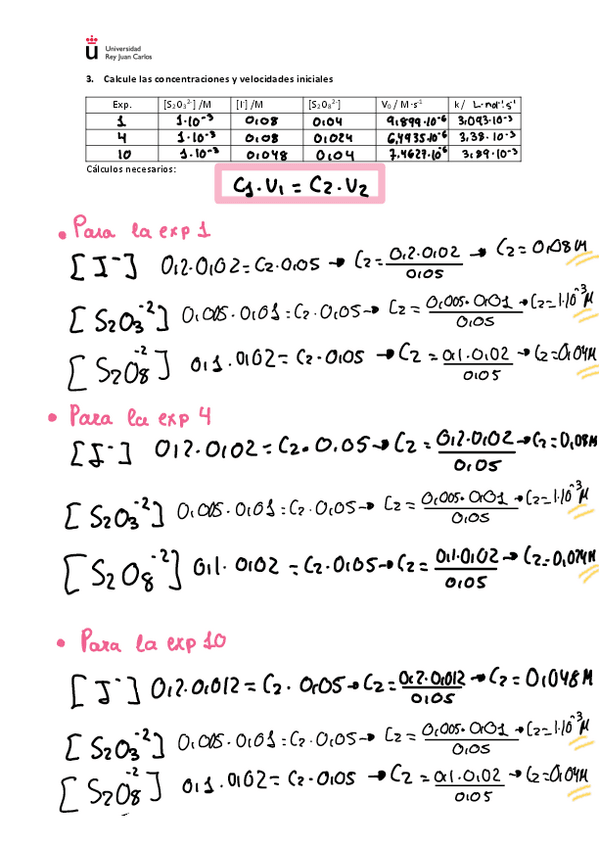 Universidad
Rey Juan Carlos
3. Calcule las concentraciones y velocidades iniciales
Exp. [S2O3²⁻] /M [I⁻] /M [S2O8²⁻] V0 / M·s⁻¹ k / L·mol⁻¹s⁻¹
1 1·10⁻³ 0,08 0,04 9,899·10⁻⁶ 3,093·10⁻³
4 1·10⁻³ 0,08 0,024 6,4935·10⁻⁶ 3,38·10⁻³
10 1·10⁻³ 0,048 0,04 7,4627·10⁻⁶ 3,89·10⁻³
Cálculos necesarios:
C1·V1 = C2·V2
• Para la exp 1
[I⁻] 0,2·0,02 = C2·0,05 → C2 = 0,2·0,02 / 0,05 → C2 = 0,08M
[S2O3⁻²] 0,005·0,01 = C2·0,05 → C2 = 0,005·0,01 / 0,05 → C2 = 1·10⁻³M
[S2O8⁻²] 0,1·0,02 = C2·0,05 → C2 = 0,1·0,02 / 0,05 → C2 = 0,04M
• Para la exp 4
[I⁻] 0,2·0,02 = C2·0,05 → C2 = 0,2·0,02 / 0,05 → C2 = 0,08M
[S2O3⁻²] 0,005·0,01 = C2·0,05 → C2 = 0,005·0,01 / 0,05 → C2 = 1·10⁻³M
[S2O8⁻²] 0,1·0,02 = C2·0,05 → C2 = 0,1·0,02 / 0,05 → C2 = 0,024M
• Para la exp 10
[I⁻] 0,2·0,012 = C2·0,05 → C2 = 0,2·0,012 / 0,05 → C2 = 0,048M
[S2O3⁻²] 0,005·0,01 = C2·0,05 → C2 = 0,005·0,01 / 0,05 → C2 = 1·10⁻³M
[S2O8⁻²] 0,1·0,02 = C2·0,05 → C2 = 0,1·0,02 / 0,05 → C2 = 0,04M